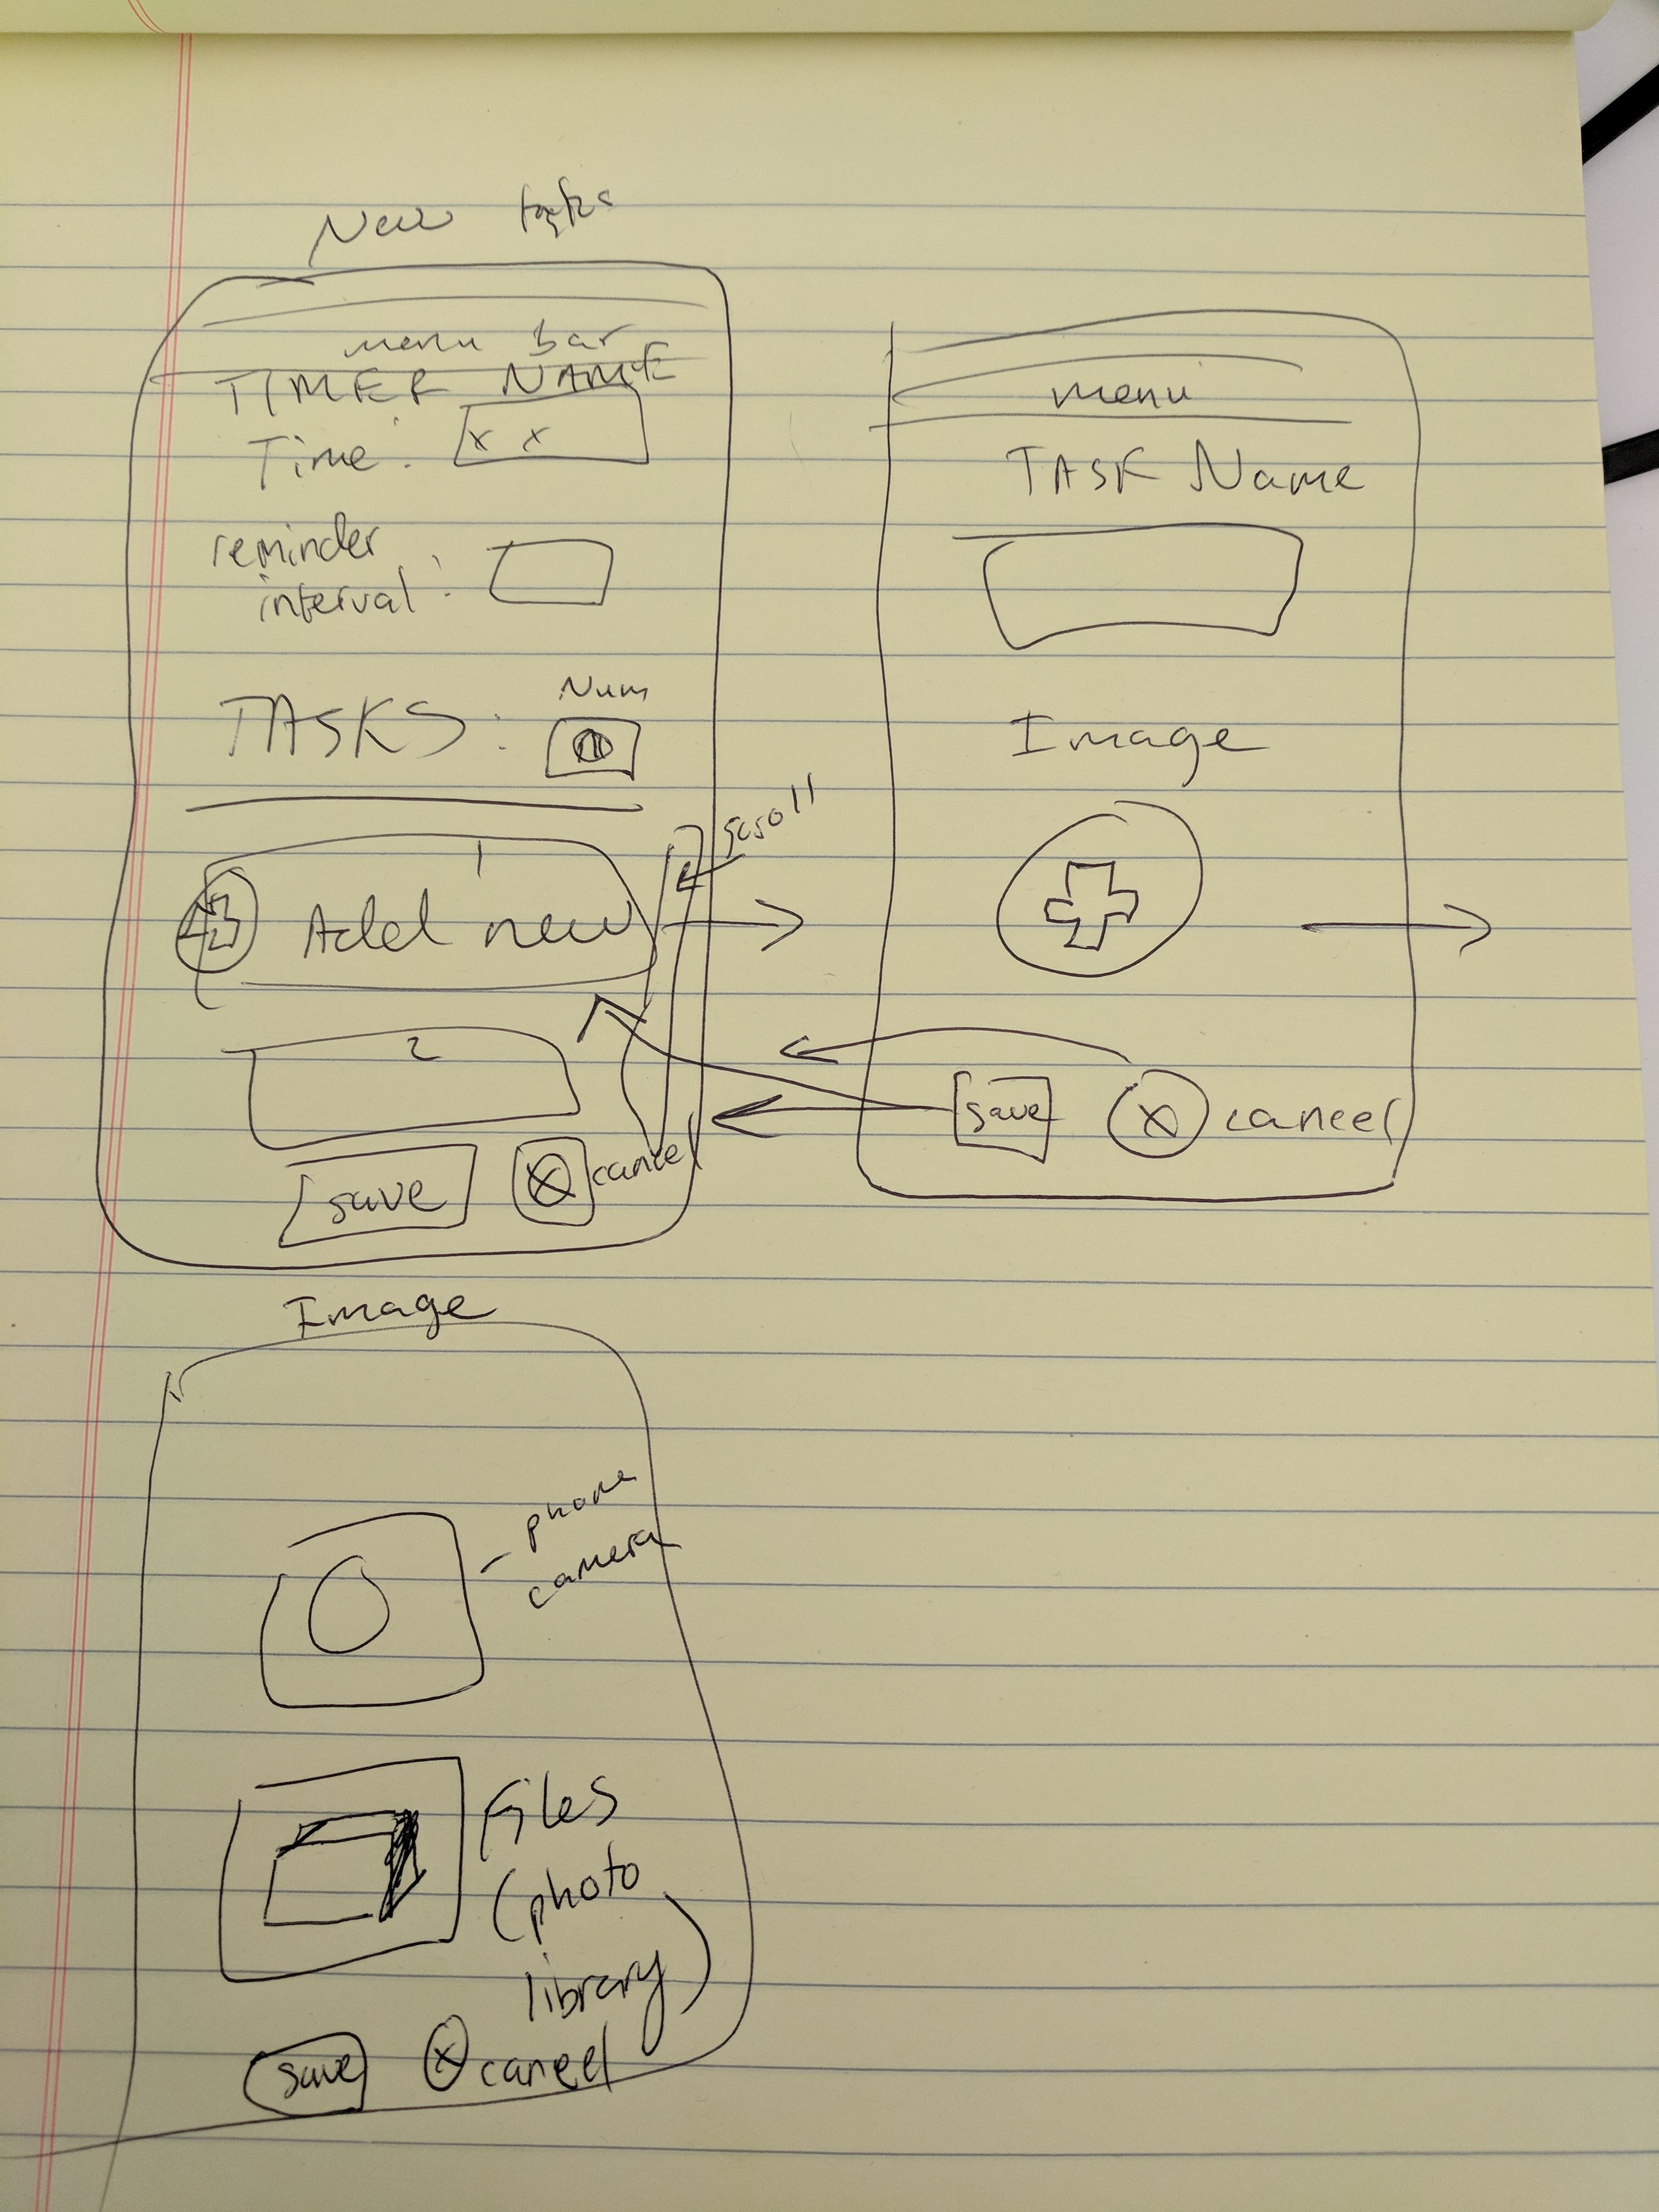 New
menu bar
TIMER NAME
Time: x x
reminder
interval:
Num
TASKS:
scroll
1
Add new
2
save
cancel
menu
TASK Name
Image
save
x cancel
Image
phone
camera
Files
(photo
library)
save
x cancel